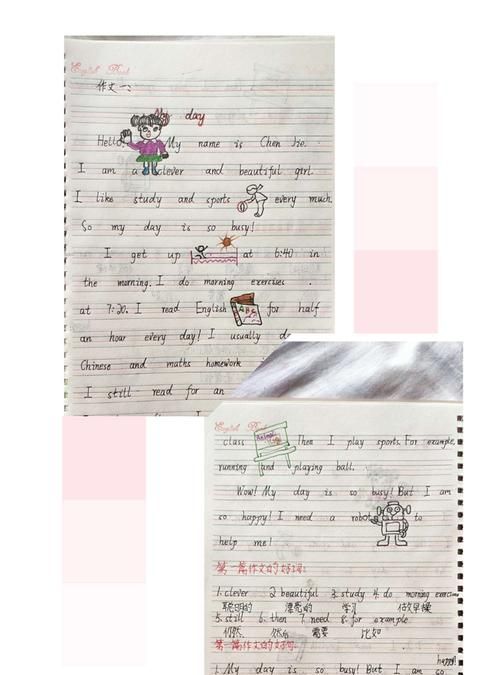 English Book
作文一:
My day
Hello! My name is Chen Jie.
I am a clever and beautiful girl.
I like study and sports every much.
So my day is so busy!
I get up at 6:40 in
the morning. I do morning exercises
at 7:20. I read English for half
ABC
an hour every day! I usually do
Chinese and maths homework
I still read for an
English Book
class Then I play sports. For example,
running and playing ball.
Wow! My day is so busy! But I am
so happy! I need a robot to
help me!
第一篇作文的好词:
1. clever 2 beautiful 3. study 4. do morning exercises
聪明的 漂亮的 学习 做早操
5. still 6. then 7. need 8. for example
仍然 然后 需要 比如
第一篇作文的好句:
happy!
1. My day is so busy! But I am so